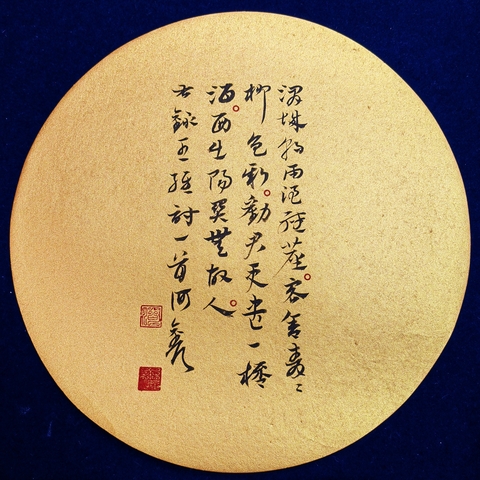 渭城朝雨浥輕塵。客舍青々
柳色新。勸君更盡一杯
酒。西出陽關無故人。
右錄王維詩一首